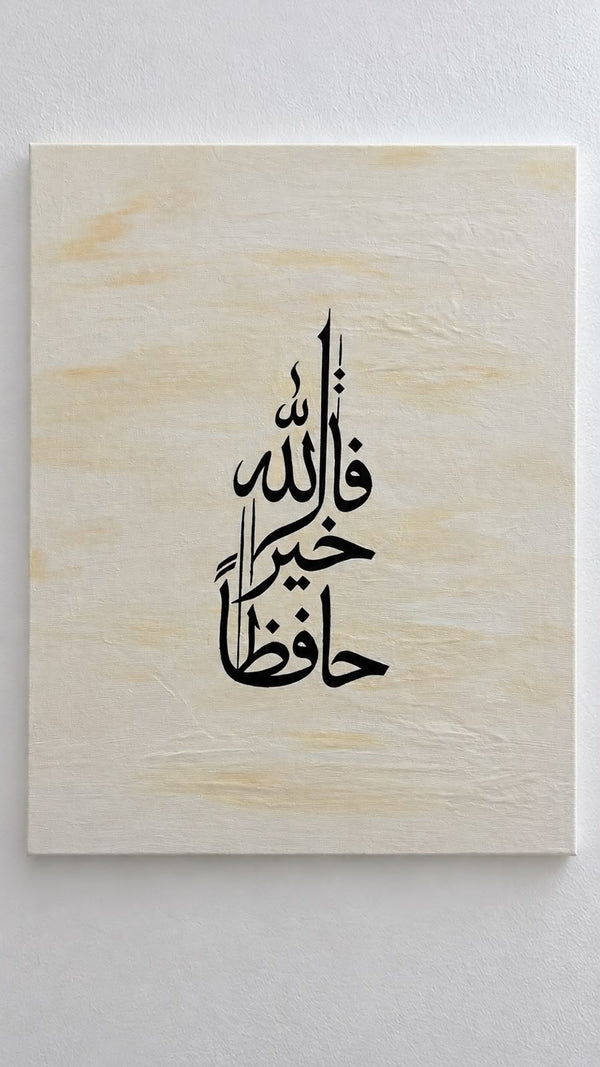 فالله
خير
حافظاً